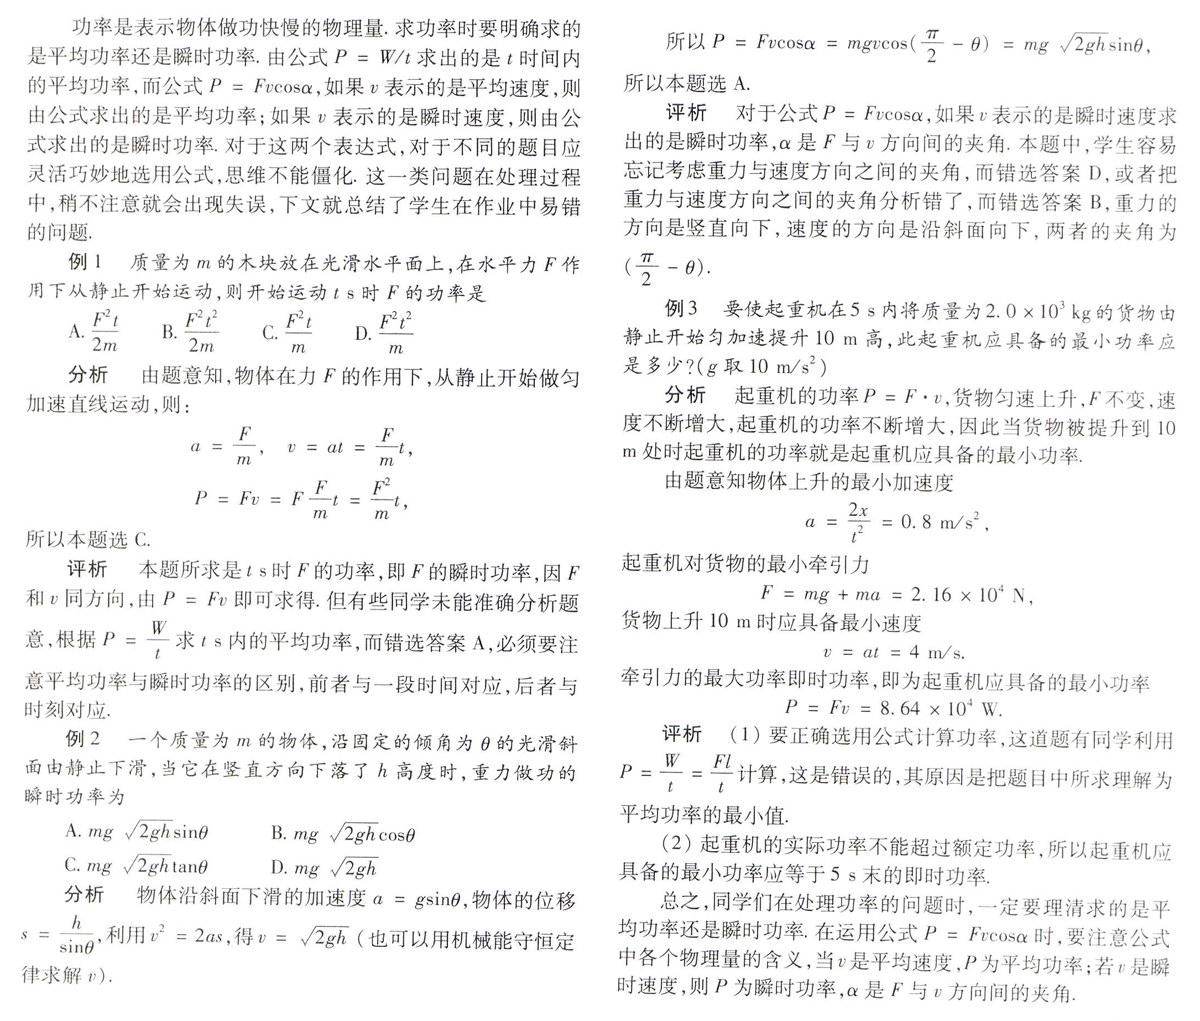 功率是表示物体做功快慢的物理量. 求功率时要明确求的
是平均功率还是瞬时功率. 由公式 P = W/t 求出的是 t 时间内
的平均功率,而公式 P = Fvcosα,如果 v 表示的是平均速度,则
由公式求出的是平均功率;如果 v 表示的是瞬时速度,则由公
式求出的是瞬时功率. 对于这两个表达式,对于不同的题目应
灵活巧妙地选用公式,思维不能僵化. 这一类问题在处理过程
中,稍不注意就会出现失误,下文就总结了学生在作业中易错
的问题.
例 1 质量为 m 的木块放在光滑水平面上,在水平力 F 作
用下从静止开始运动,则开始运动 t s 时 F 的功率是
A. F²t/2m B. F²t²/2m C. F²t/m D. F²t²/m
分析 由题意知,物体在力 F 的作用下,从静止开始做匀
加速直线运动,则:
a = F/m, v = at = F/m t,
P = Fv = F F/m t = F²/m t,
所以本题选 C.
评析 本题所求是 t s 时 F 的功率,即 F 的瞬时功率,因 F
和 v 同方向,由 P = Fv 即可求得. 但有些同学未能准确分析题
意,根据 P = W/t 求 t s 内的平均功率,而错选答案 A,必须要注
意平均功率与瞬时功率的区别,前者与一段时间对应,后者与
时刻对应.
例 2 一个质量为 m 的物体,沿固定的倾角为 θ 的光滑斜
面由静止下滑,当它在竖直方向下落了 h 高度时,重力做功的
瞬时功率为
A. mg √2gh sinθ B. mg √2gh cosθ
C. mg √2gh tanθ D. mg √2gh
分析 物体沿斜面下滑的加速度 a = gsinθ,物体的位移
s = h/sinθ,利用 v² = 2as,得 v = √2gh (也可以用机械能守恒定
律求解 v).
所以 P = Fvcosα = mgvcos(π/2 − θ) = mg √2gh sinθ,
所以本题选 A.
评析 对于公式 P = Fvcosα,如果 v 表示的是瞬时速度求
出的是瞬时功率,α 是 F 与 v 方向间的夹角. 本题中,学生容易
忘记考虑重力与速度方向之间的夹角,而错选答案 D,或者把
重力与速度方向之间的夹角分析错了,而错选答案 B,重力的
方向是竖直向下,速度的方向是沿斜面向下,两者的夹角为
(π/2 − θ).
例 3 要使起重机在 5 s 内将质量为 2.0 × 10³ kg 的货物由
静止开始匀加速提升 10 m 高,此起重机应具备的最小功率应
是多少?(g 取 10 m/s²)
分析 起重机的功率 P = F · v,货物匀速上升,F 不变,速
度不断增大,起重机的功率不断增大,因此当货物被提升到 10
m 处时起重机的功率就是起重机应具备的最小功率.
由题意知物体上升的最小加速度
a = 2x/t² = 0.8 m/s²,
起重机对货物的最小牵引力
F = mg + ma = 2.16 × 10⁴ N,
货物上升 10 m 时应具备最小速度
v = at = 4 m/s.
牵引力的最大功率即时功率,即为起重机应具备的最小功率
P = Fv = 8.64 × 10⁴ W.
评析 (1) 要正确选用公式计算功率,这道题有同学利用
P = W/t = Fl/t 计算,这是错误的,其原因是把题目中所求理解为
平均功率的最小值.
(2) 起重机的实际功率不能超过额定功率,所以起重机应
具备的最小功率应等于 5 s 末的即时功率.
总之,同学们在处理功率的问题时,一定要理清求的是平
均功率还是瞬时功率. 在运用公式 P = Fvcosα 时,要注意公式
中各个物理量的含义,当 v 是平均速度,P 为平均功率;若 v 是瞬
时速度,则 P 为瞬时功率,α 是 F 与 v 方向间的夹角.